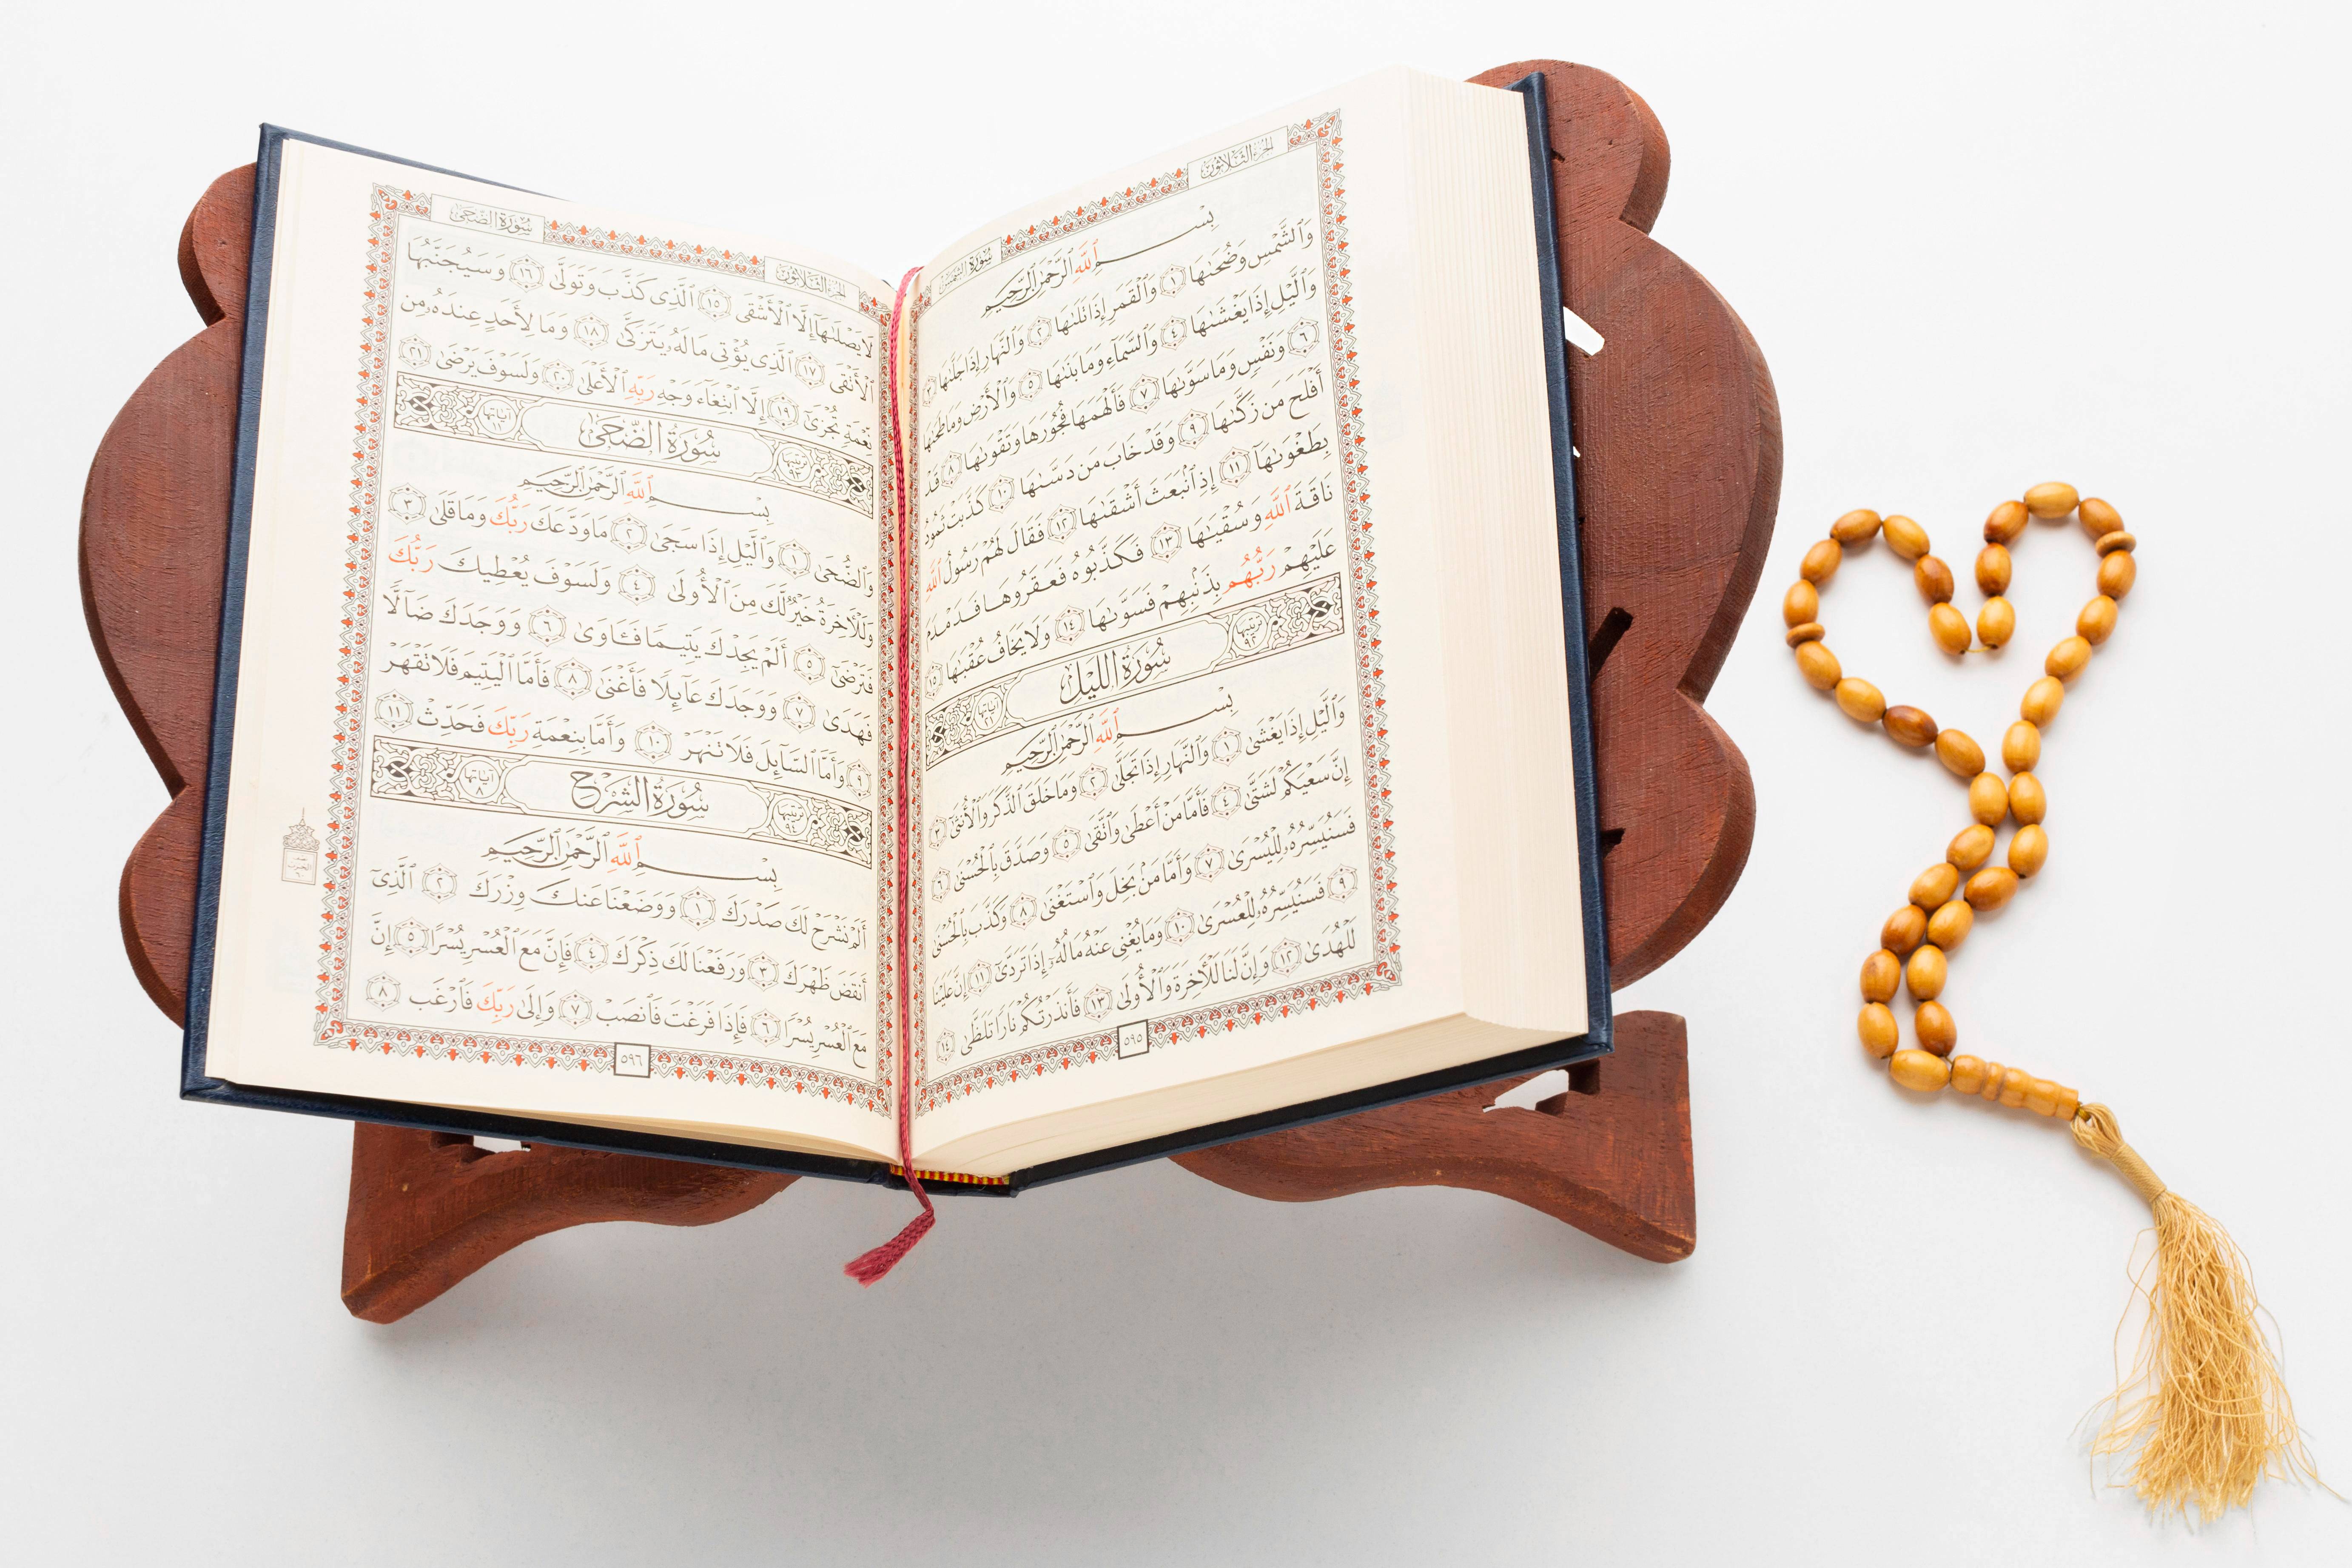 الجزء الثلاثون
سورة الشمس
بِسْمِ ٱللَّهِ ٱلرَّحْمَٰنِ ٱلرَّحِيمِ
وَٱلشَّمْسِ وَضُحَىٰهَا ١ وَٱلْقَمَرِ إِذَا تَلَىٰهَا ٢ وَٱلنَّهَارِ إِذَا جَلَّىٰهَا ٣
وَٱلَّيْلِ إِذَا يَغْشَىٰهَا ٤ وَٱلسَّمَآءِ وَمَا بَنَىٰهَا ٥ وَٱلْأَرْضِ وَمَا طَحَىٰهَا
٦ وَنَفْسٍ وَمَا سَوَّىٰهَا ٧ فَأَلْهَمَهَا فُجُورَهَا وَتَقْوَىٰهَا ٨ قَدْ
أَفْلَحَ مَن زَكَّىٰهَا ٩ وَقَدْ خَابَ مَن دَسَّىٰهَا ١٠ كَذَّبَتْ ثَمُودُ
بِطَغْوَىٰهَآ ١١ إِذِ ٱنۢبَعَثَ أَشْقَىٰهَا ١٢ فَقَالَ لَهُمْ رَسُولُ ٱللَّهِ
نَاقَةَ ٱللَّهِ وَسُقْيَٰهَا ١٣ فَكَذَّبُوهُ فَعَقَرُوهَا فَدَمْدَمَ
عَلَيْهِمْ رَبُّهُم بِذَنۢبِهِمْ فَسَوَّىٰهَا ١٤ وَلَا يَخَافُ عُقْبَٰهَا ١٥
ترتيبها ٩٢ سُورَةُ اللَّيْل آياتها ٢١
بِسْمِ ٱللَّهِ ٱلرَّحْمَٰنِ ٱلرَّحِيمِ
وَٱلَّيْلِ إِذَا يَغْشَىٰ ١ وَٱلنَّهَارِ إِذَا تَجَلَّىٰ ٢ وَمَا خَلَقَ ٱلذَّكَرَ وَٱلْأُنثَىٰٓ ٣
إِنَّ سَعْيَكُمْ لَشَتَّىٰ ٤ فَأَمَّا مَنْ أَعْطَىٰ وَٱتَّقَىٰ ٥ وَصَدَّقَ بِٱلْحُسْنَىٰ ٦
فَسَنُيَسِّرُهُۥ لِلْيُسْرَىٰ ٧ وَأَمَّا مَنۢ بَخِلَ وَٱسْتَغْنَىٰ ٨ وَكَذَّبَ بِٱلْحُسْنَىٰ
٩ فَسَنُيَسِّرُهُۥ لِلْعُسْرَىٰ ١٠ وَمَا يُغْنِى عَنْهُ مَالُهُۥٓ إِذَا تَرَدَّىٰٓ ١١ إِنَّ عَلَيْنَا
لَلْهُدَىٰ ١٢ وَإِنَّ لَنَا لَلْأَخِرَةَ وَٱلْأُولَىٰ ١٣ فَأَنذَرْتُكُمْ نَارًا تَلَظَّىٰ ١٤
٥٩٥
الجزء الثلاثون
سورة الضحى
لَا يَصْلَىٰهَآ إِلَّا ٱلْأَشْقَى ١٥ ٱلَّذِى كَذَّبَ وَتَوَلَّىٰ ١٦ وَسَيُجَنَّبُهَا
ٱلْأَتْقَى ١٧ ٱلَّذِى يُؤْتِى مَالَهُۥ يَتَزَكَّىٰ ١٨ وَمَا لِأَحَدٍ عِندَهُۥ مِن
نِّعْمَةٍ تُجْزَىٰٓ ١٩ إِلَّا ٱبْتِغَآءَ وَجْهِ رَبِّهِ ٱلْأَعْلَىٰ ٢٠ وَلَسَوْفَ يَرْضَىٰ ٢١
ترتيبها ٩٣ سُورَةُ الضُّحَىٰ آياتها ١١
بِسْمِ ٱللَّهِ ٱلرَّحْمَٰنِ ٱلرَّحِيمِ
وَٱلضُّحَىٰ ١ وَٱلَّيْلِ إِذَا سَجَىٰ ٢ مَا وَدَّعَكَ رَبُّكَ وَمَا قَلَىٰ ٣
وَلَلْأَخِرَةُ خَيْرٌ لَّكَ مِنَ ٱلْأُولَىٰ ٤ وَلَسَوْفَ يُعْطِيكَ رَبُّكَ
فَتَرْضَىٰٓ ٥ أَلَمْ يَجِدْكَ يَتِيمًا فَـَٔاوَىٰ ٦ وَوَجَدَكَ ضَآلًّا
فَهَدَىٰ ٧ وَوَجَدَكَ عَآئِلًا فَأَغْنَىٰ ٨ فَأَمَّا ٱلْيَتِيمَ فَلَا تَقْهَرْ
٩ وَأَمَّا ٱلسَّآئِلَ فَلَا تَنْهَرْ ١٠ وَأَمَّا بِنِعْمَةِ رَبِّكَ فَحَدِّثْ ١١
ترتيبها ٩٤ سُورَةُ الشَّرْح آياتها ٨
بِسْمِ ٱللَّهِ ٱلرَّحْمَٰنِ ٱلرَّحِيمِ
أَلَمْ نَشْرَحْ لَكَ صَدْرَكَ ١ وَوَضَعْنَا عَنكَ وِزْرَكَ ٢ ٱلَّذِىٓ
أَنقَضَ ظَهْرَكَ ٣ وَرَفَعْنَا لَكَ ذِكْرَكَ ٤ فَإِنَّ مَعَ ٱلْعُسْرِ يُسْرًا ٥ إِنَّ
مَعَ ٱلْعُسْرِ يُسْرًا ٦ فَإِذَا فَرَغْتَ فَٱنصَبْ ٧ وَإِلَىٰ رَبِّكَ فَٱرْغَب ٨
٥٩٦